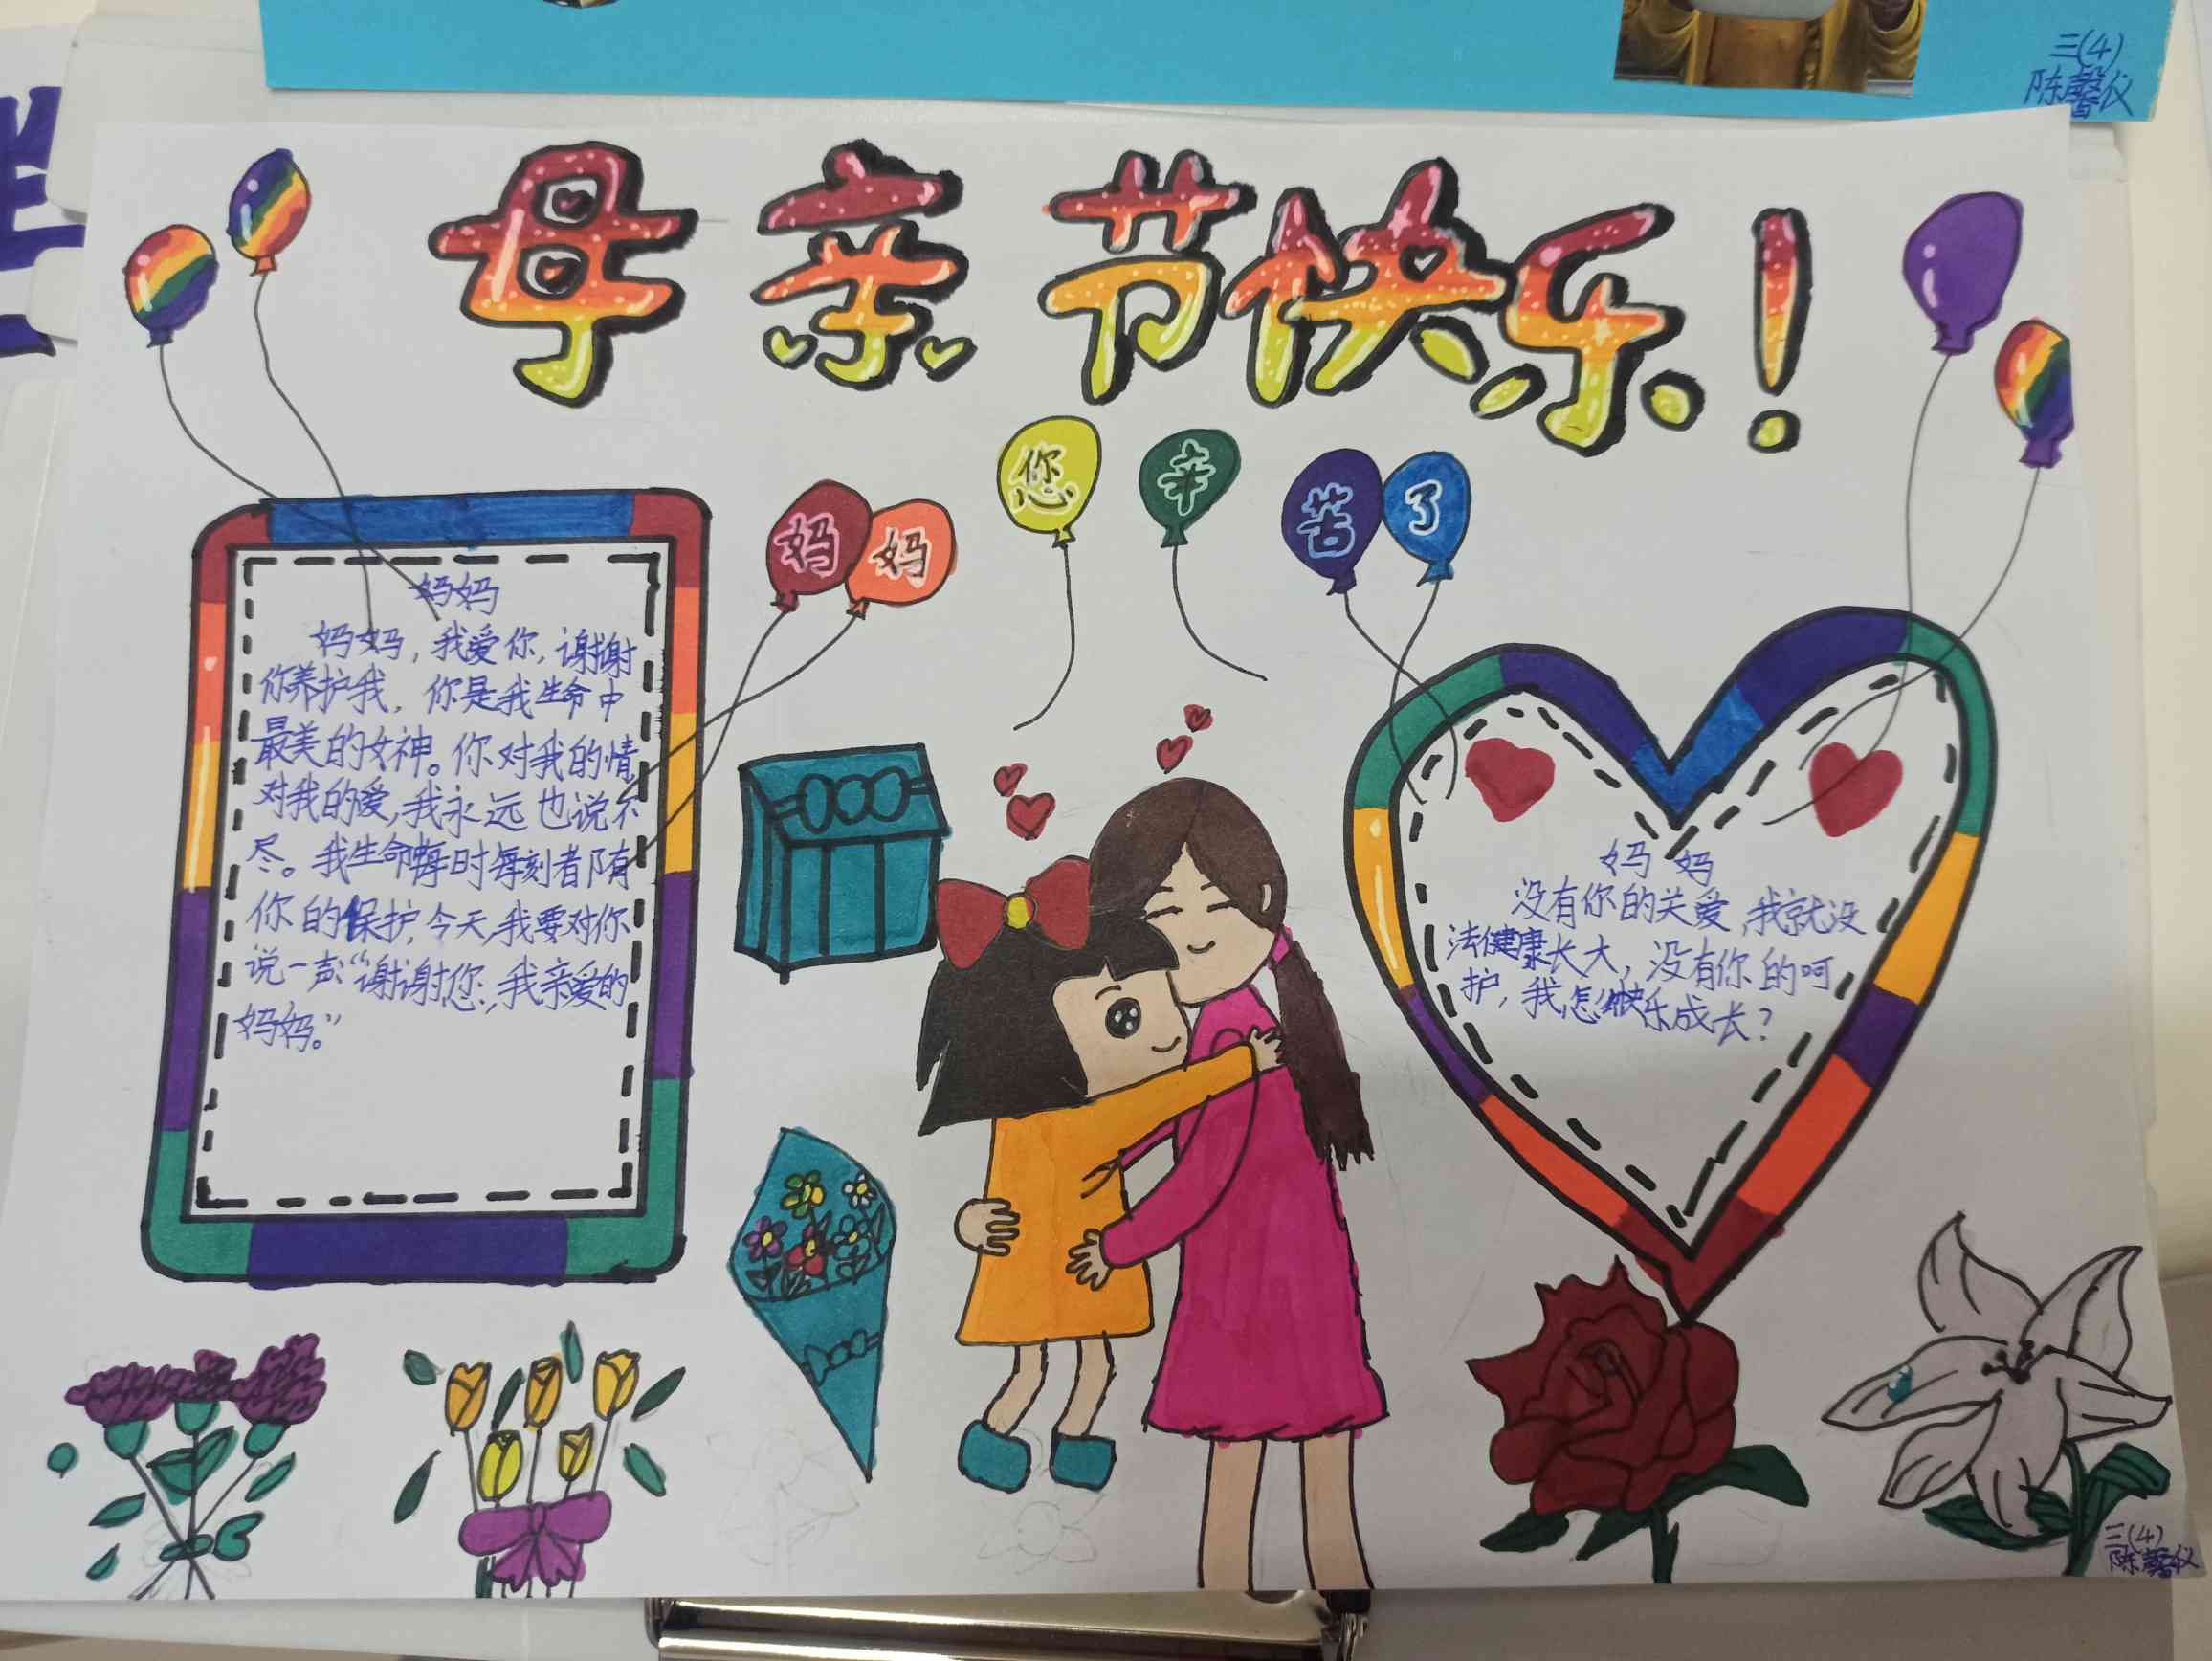 三(4)
陈馨仪
母亲节快乐!
妈妈您辛苦了
妈妈
妈妈,我爱你,谢谢
你养护我,你是我生命中
最美的女神。你对我的情
对我的爱,我永远也说不
尽。我生命每时每刻都有
你的保护,今天,我要对你
说一声“谢谢您,我亲爱的
妈妈。”
妈妈
没有你的关爱,我就没
法健康长大,没有你的呵
护,我怎么快乐成长?
三(4)
陈馨仪